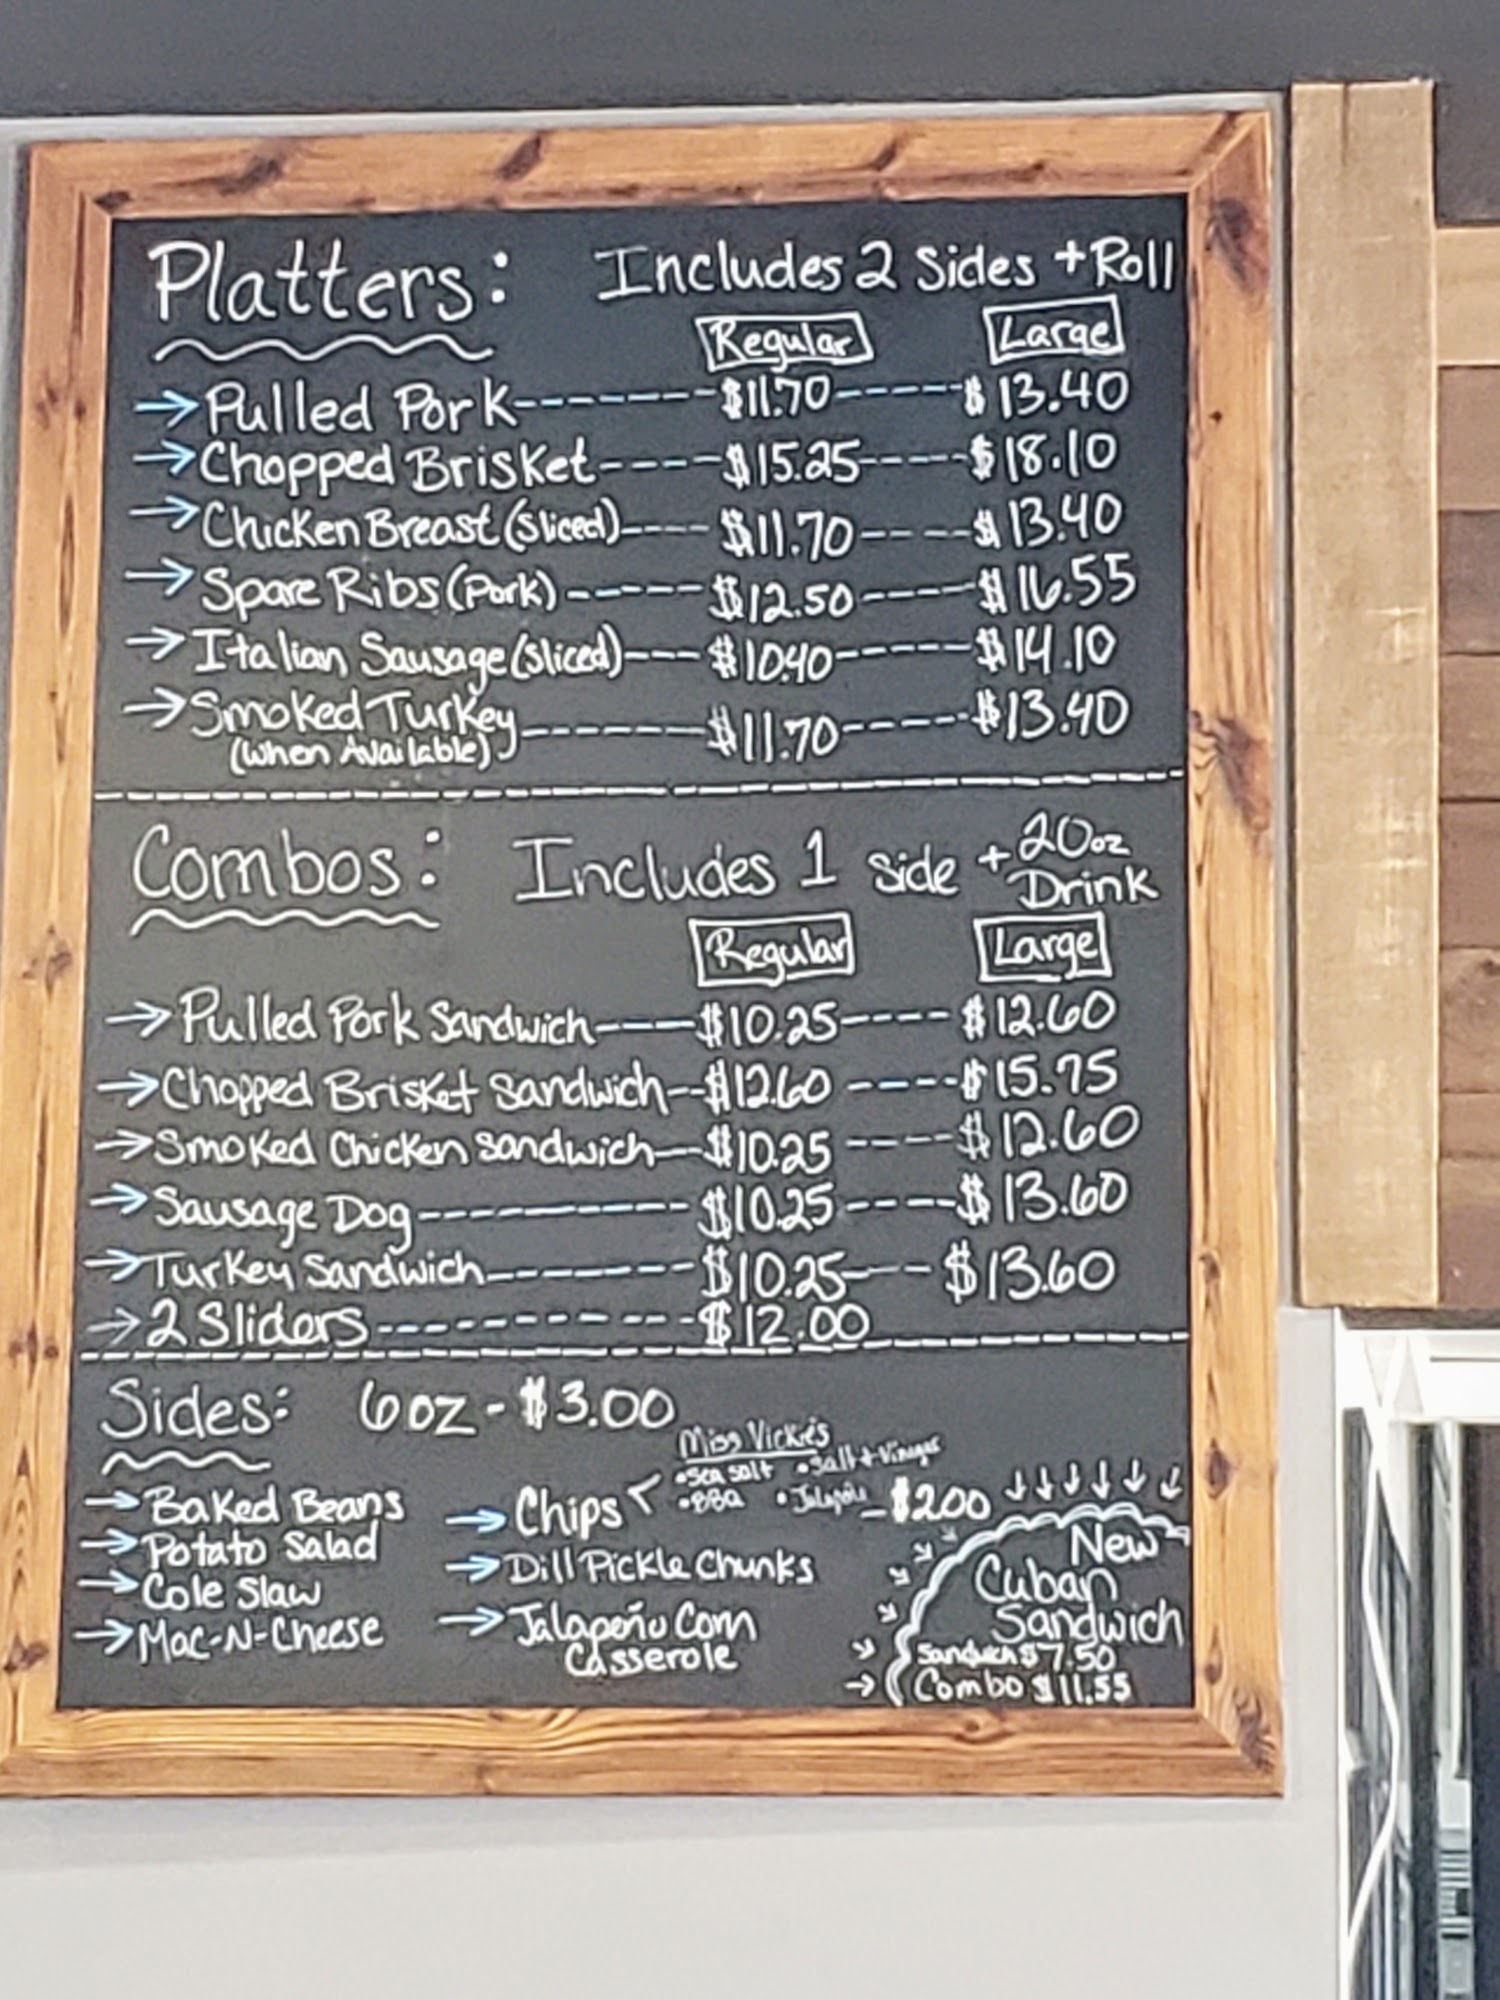 Platters: Includes 2 Sides + Roll
Regular Large
→ Pulled Pork ------- $11.70 ----- $13.40
→ Chopped Brisket ----- $15.25 ----- $18.10
→ Chicken Breast (Sliced) ---- $11.70 ---- $13.40
→ Spare Ribs (Pork) ----- $12.50 ---- $16.55
→ Italian Sausage (Sliced) --- $10.40 ----- $14.10
→ Smoked Turkey ------ $11.70 ----- $13.40
(When Available)
Combos: Includes 1 Side + 20oz Drink
Regular Large
→ Pulled Pork Sandwich ---- $10.25 ---- $12.60
→ Chopped Brisket Sandwich -- $12.60 ---- $15.75
→ Smoked Chicken Sandwich -- $10.25 ---- $12.60
→ Sausage Dog --------- $10.25 ---- $13.60
→ Turkey Sandwich ------- $10.25 --- $13.60
→ 2 Sliders --------- $12.00
Sides: 6oz - $3.00
→ Baked Beans
→ Potato Salad
→ Cole Slaw
→ Mac-N-Cheese
Miss Vickie's
• Sea Salt • Salt + Vinegar
→ Chips < • BBQ • Jalapeño - $2.00
→ Dill Pickle Chunks
→ Jalapeño Corn
Casserole
New
Cuban
Sandwich
Sandwich $7.50
Combo $11.55